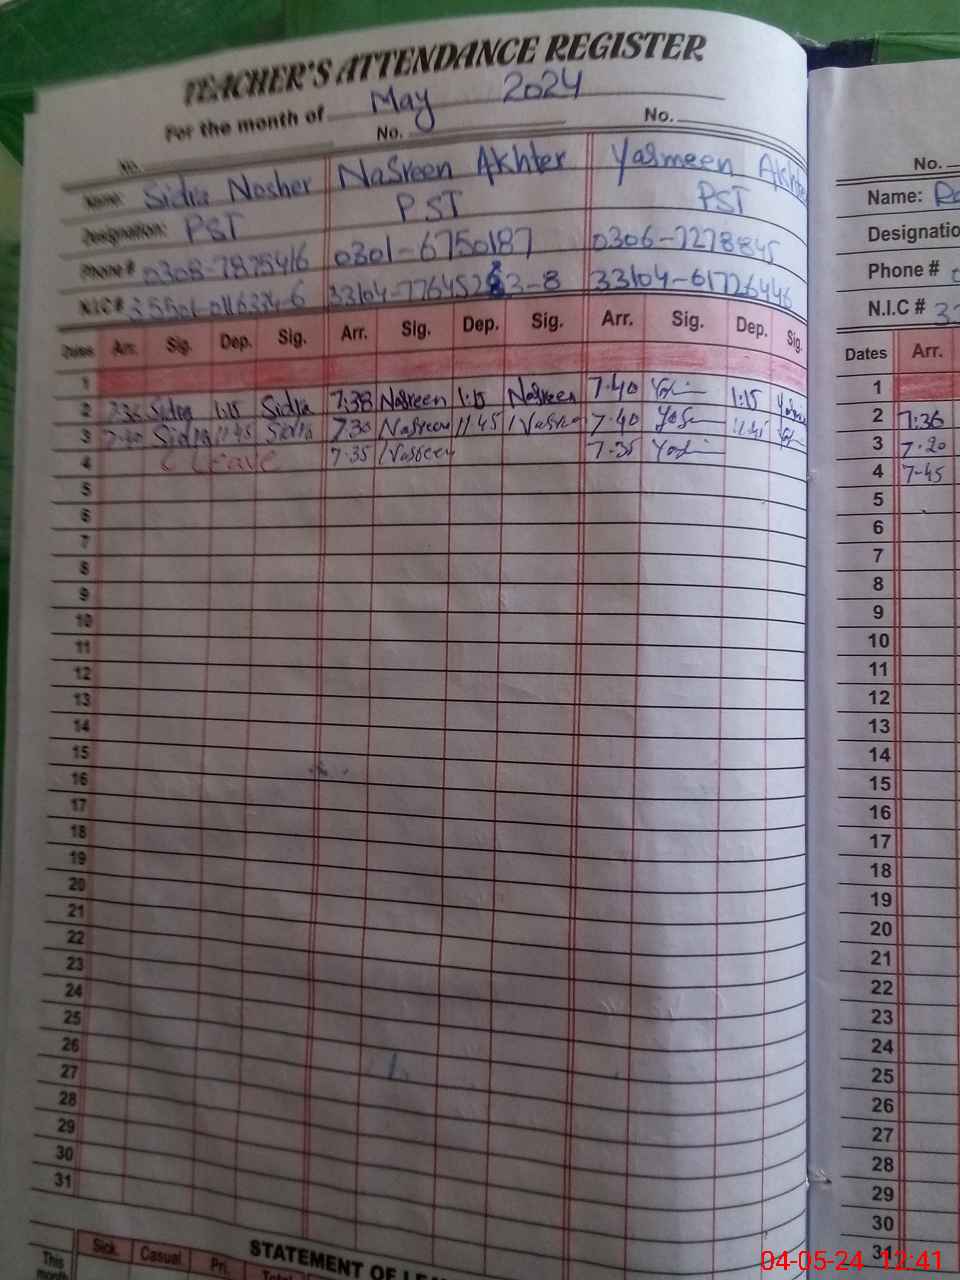 TEACHER'S ATTENDANCE REGISTER
For the month of May 2024
No. No. No.
Name: Sidra Nosher Nasreen Akhter Yasmeen Akhter
Designation: PST PST PST
Phone # 0308-7875416 0301-6750187 0306-7278845
N.I.C # 33104-61726446
Dates Arr. Sig. Dep. Sig. Arr. Sig. Dep. Sig. Arr. Sig. Dep. Sig.
1
2 7:36 Sidra 1:15 Sidra 7:38 Nasreen 1:15 Nasreen 7-40 1:15
3 7-40 Sidra 11 45 Sidra 7:30 Nasreen 11 45 Nasreen 7-40 11:45
4 C Leave 7-35 Nasreen 7-35
5
6
7
8
9
10
11
12
13
14
15
16
17
18
19
20
21
22
23
24
25
26
27
28
29
30
31
STATEMENT OF LEA
This month
Sick Casual Pri. Total
No.
Name:
Designatio
Phone # 0
N.I.C # 33
Dates Arr.
1
2 7:36
3 7-20
4 7-45
5
6
7
8
9
10
11
12
13
14
15
16
17
18
19
20
21
22
23
24
25
26
27
28
29
30
31
04-05-24 12:41